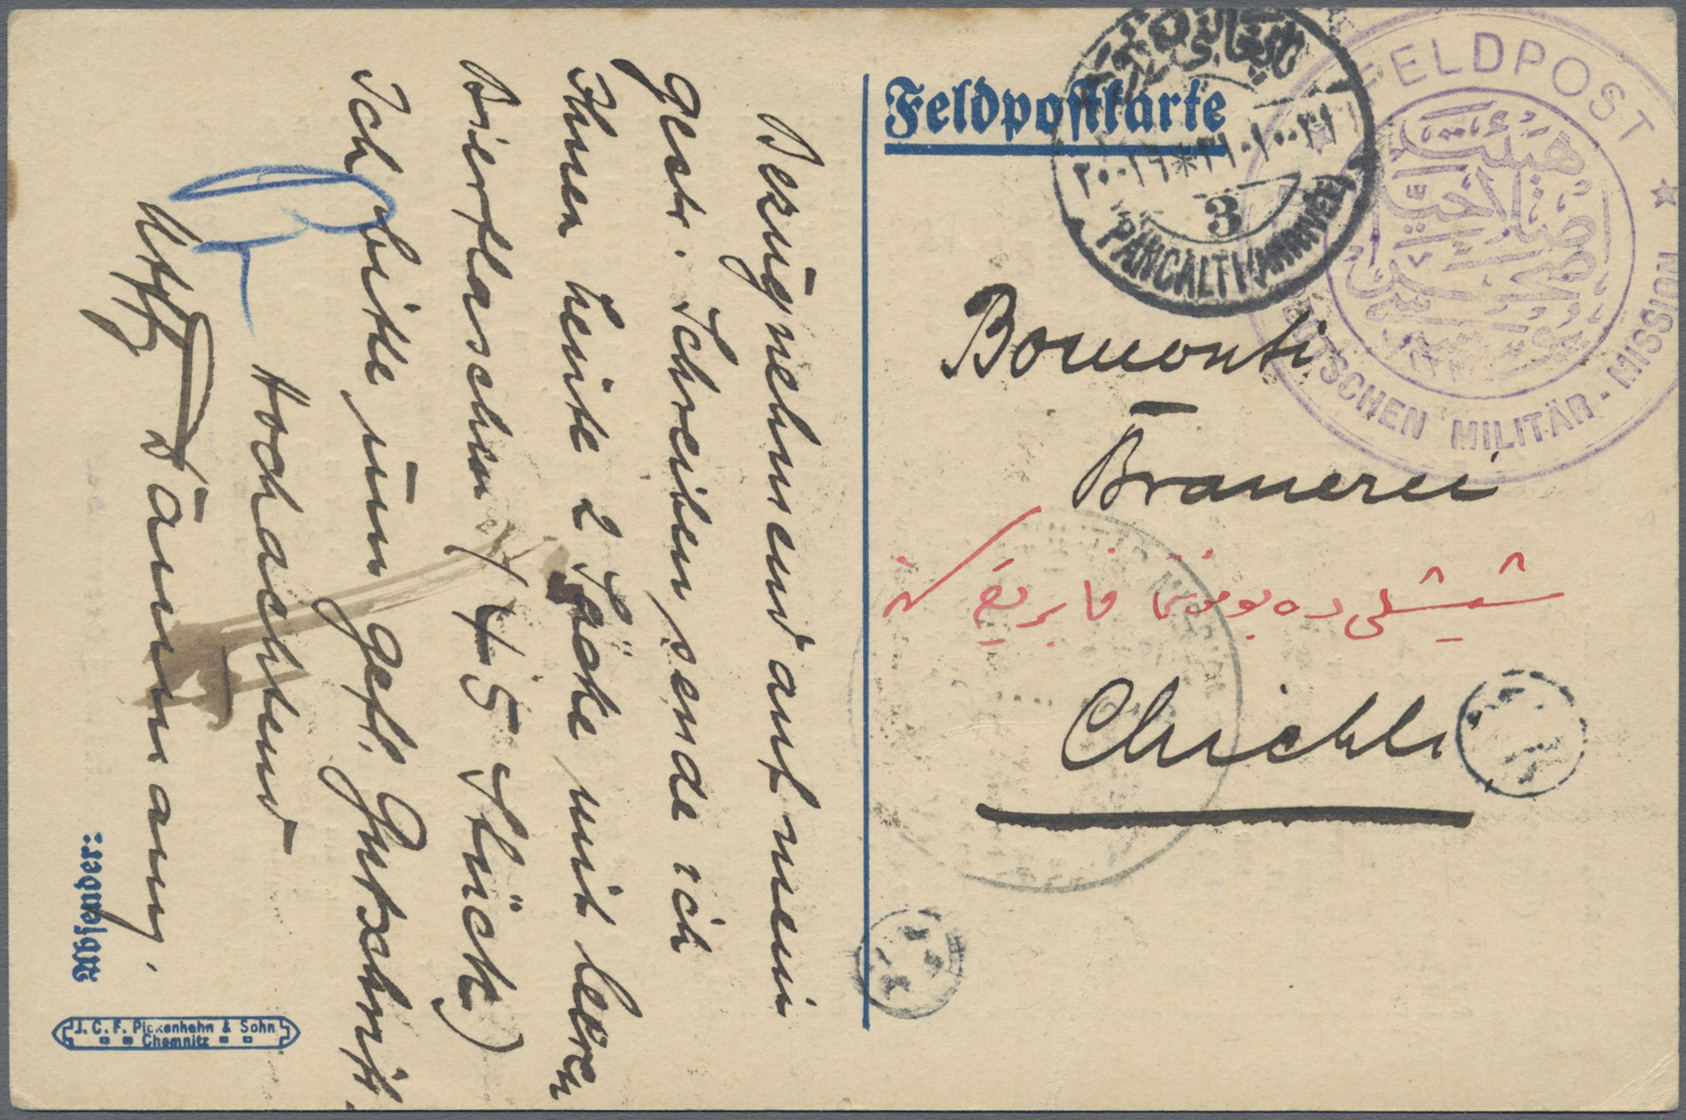 Feldpostkarte
FELDPOST
DEUTSCHEN MILITÄR-MISSION
هيئت
اصلاحيه
3
PANCALTI (HARRIÉ)
Bomonti
Brauerei
شيشلى ده بومونتى فابريقه
Chichli
Bezugnehmend auf mein
gestr. Schreiben sende ich
Ihnen heute 2 Säcke mit leeren
Bierflaschen (45 Stück)
Ich bitte um gefl. Gutschrift.
Hochachtend
Absender:
J. C. F. Pickenhahn & Sohn
Chemnitz